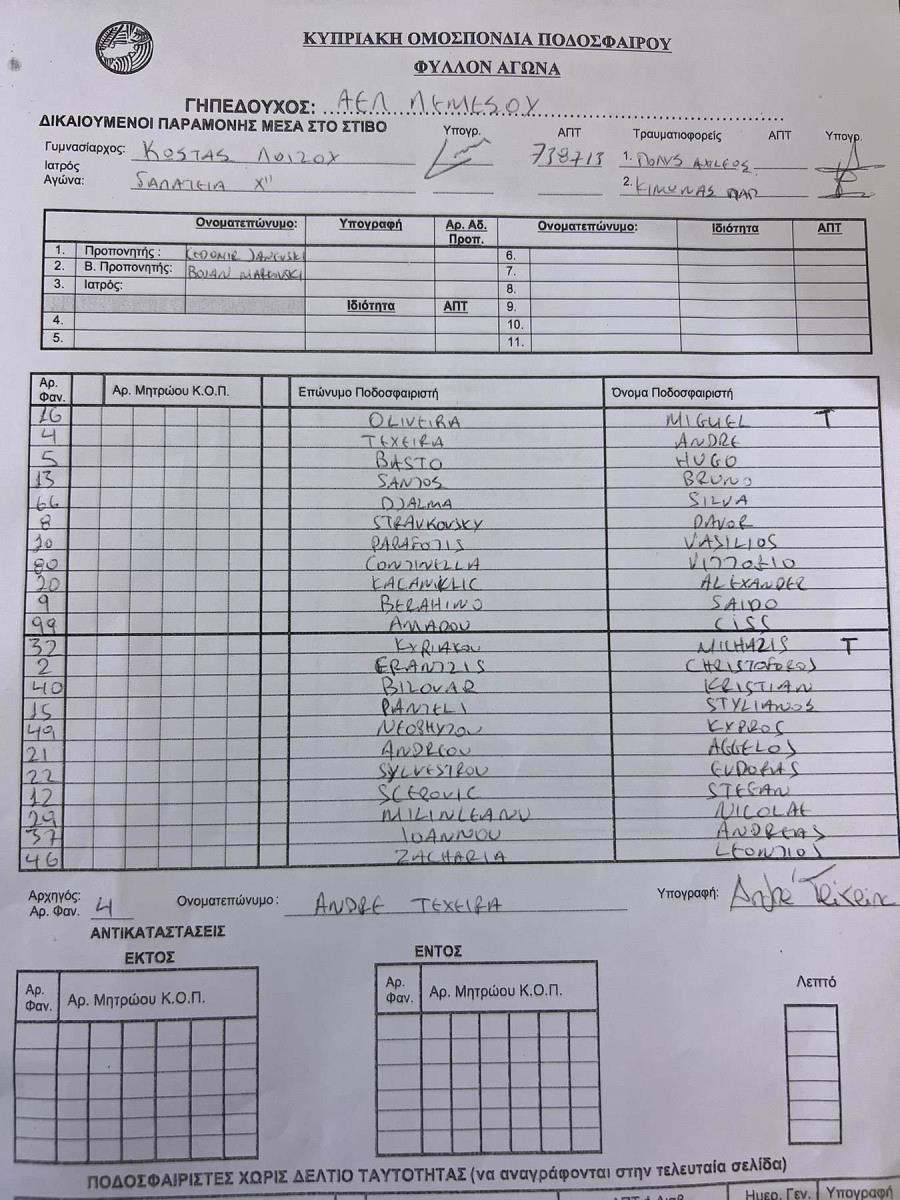 ΚΥΠΡΙΑΚΗ ΟΜΟΣΠΟΝΔΙΑ ΠΟΔΟΣΦΑΙΡΟΥ
ΦΥΛΛΟΝ ΑΓΩΝΑ
ΓΗΠΕΔΟΥΧΟΣ: ΑΕΛ ΛΕΜΕΣΟΥ
ΔΙΚΑΙΟΥΜΕΝΟΙ ΠΑΡΑΜΟΝΗΣ ΜΕΣΑ ΣΤΟ ΣΤΙΒΟ Υπογρ. ΑΠΤ Τραυματιοφορείς ΑΠΤ Υπογρ.
Γυμνασίαρχος: ΚΟΣΤΑΣ ΛΟΙΖΟΥ 738713 1.
Ιατρός
Αγώνα: ΓΑΛΑΤΕΙΑ Χ" 2. ΚΙΜΩΝΑΣ ΠΑΠ
Ονοματεπώνυμο: Υπογραφή Αρ. Αδ. Προπ. Ονοματεπώνυμο: Ιδιότητα ΑΠΤ
1. Προπονητής : 6.
2. Β. Προπονητής: 7.
3. Ιατρός: 8.
Ιδιότητα ΑΠΤ 9.
4. 10.
5. 11.
Αρ. Φαν. Αρ. Μητρώου Κ.Ο.Π. Επώνυμο Ποδοσφαιριστή Όνομα Ποδοσφαιριστή
16 OLIVEIRA MIGUEL T
4 TEXEIRA ANDRE
5 BASTO HUGO
13 SANTOS BRUNO
66 DJALMA SILVA
8 STRAVKOVSKY DAVOR
10 PAPAFOTIS VASILIOS
80 CONTINELLA VITTOTIO
20 KACANIKLIC ALEXANDER
9 BERAHINO SAIDO
99 AMADOU CISS
32 KYRIAKOU MICHAZIS T
2 FRANTZIS CHRISTOFOROS
40 BILOVAR KRISTIAN
15 PANTELI STYLIANOS
49 NEOPHYTOU KYPROS
21 ANDREOU AGGELOS
22 SYLVESTROU EVDORAS
12 SCEROVIC STEFAN
29 MILINCEANU NICOLAE
37 IOANNOU ANDREAS
46 ZACHARIA LEONTIOS
Αρχηγός:
Αρ. Φαν. 4 Ονοματεπώνυμο: ANDRE TEXEIRA Υπογραφή: André Teixeira
ΑΝΤΙΚΑΤΑΣΤΑΣΕΙΣ
ΕΚΤΟΣ ΕΝΤΟΣ
Αρ. Φαν. Αρ. Μητρώου Κ.Ο.Π. Αρ. Φαν. Αρ. Μητρώου Κ.Ο.Π. Λεπτό
ΠΟΔΟΣΦΑΙΡΙΣΤΕΣ ΧΩΡΙΣ ΔΕΛΤΙΟ ΤΑΥΤΟΤΗΤΑΣ (να αναγράφονται στην τελευταία σελίδα)
Ημερ. Γεν. Υπογραφή